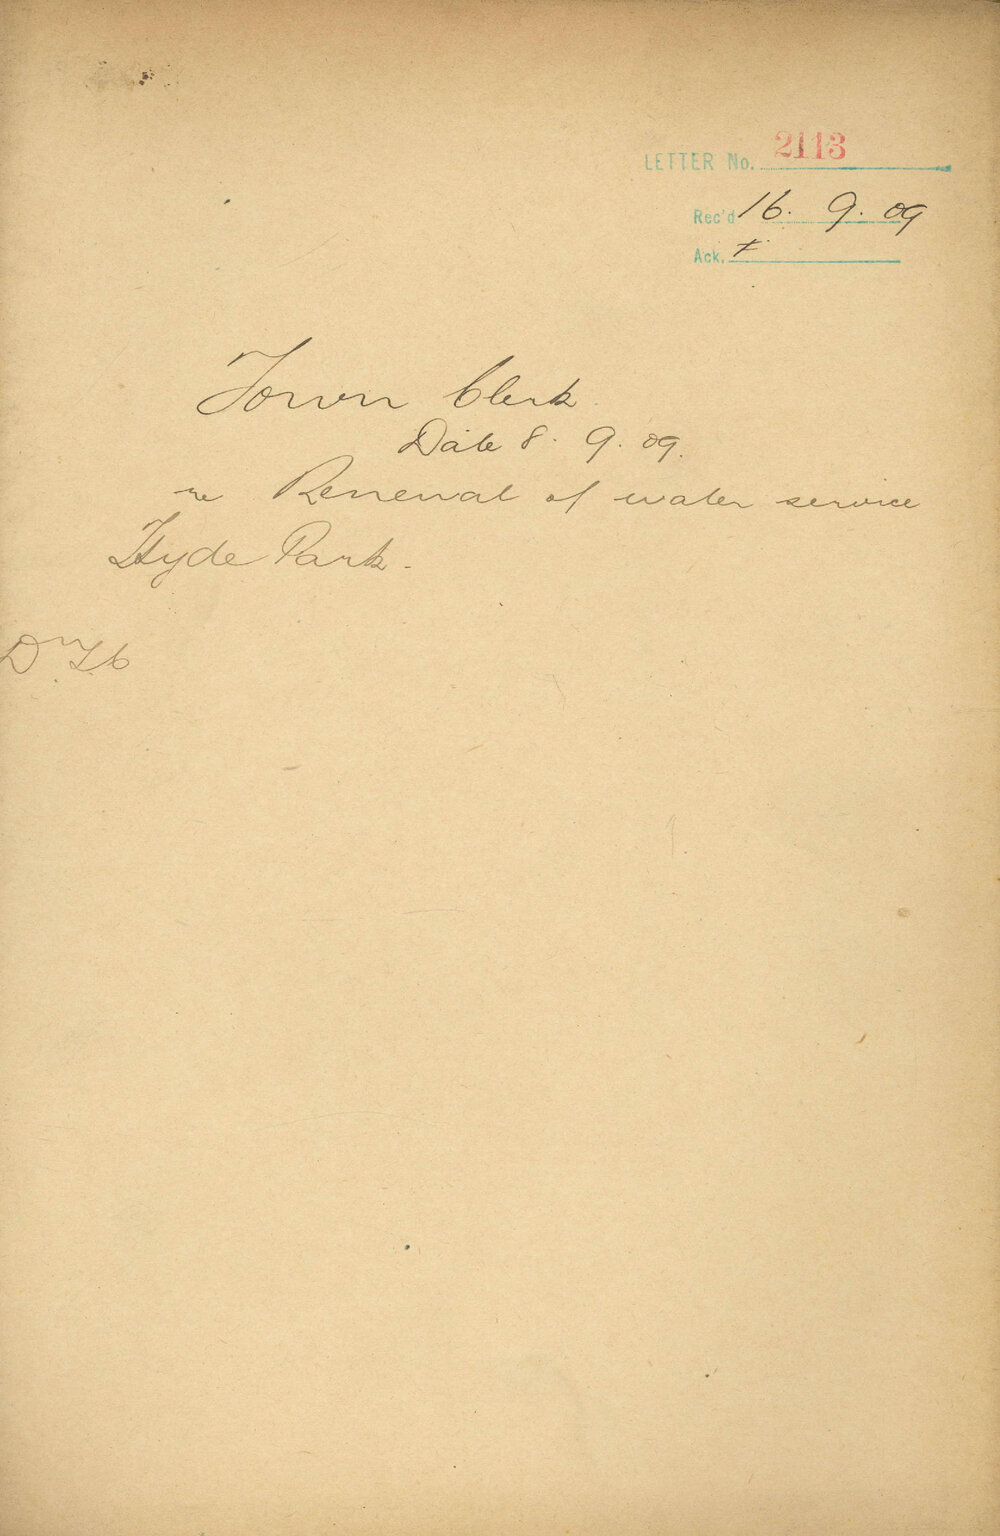 LETTER No. 2113
Rec'd 16. 9. 09
Ack.
Town Clerk
Date 8. 9. 09.
re Renewal of water service
Hyde Park.